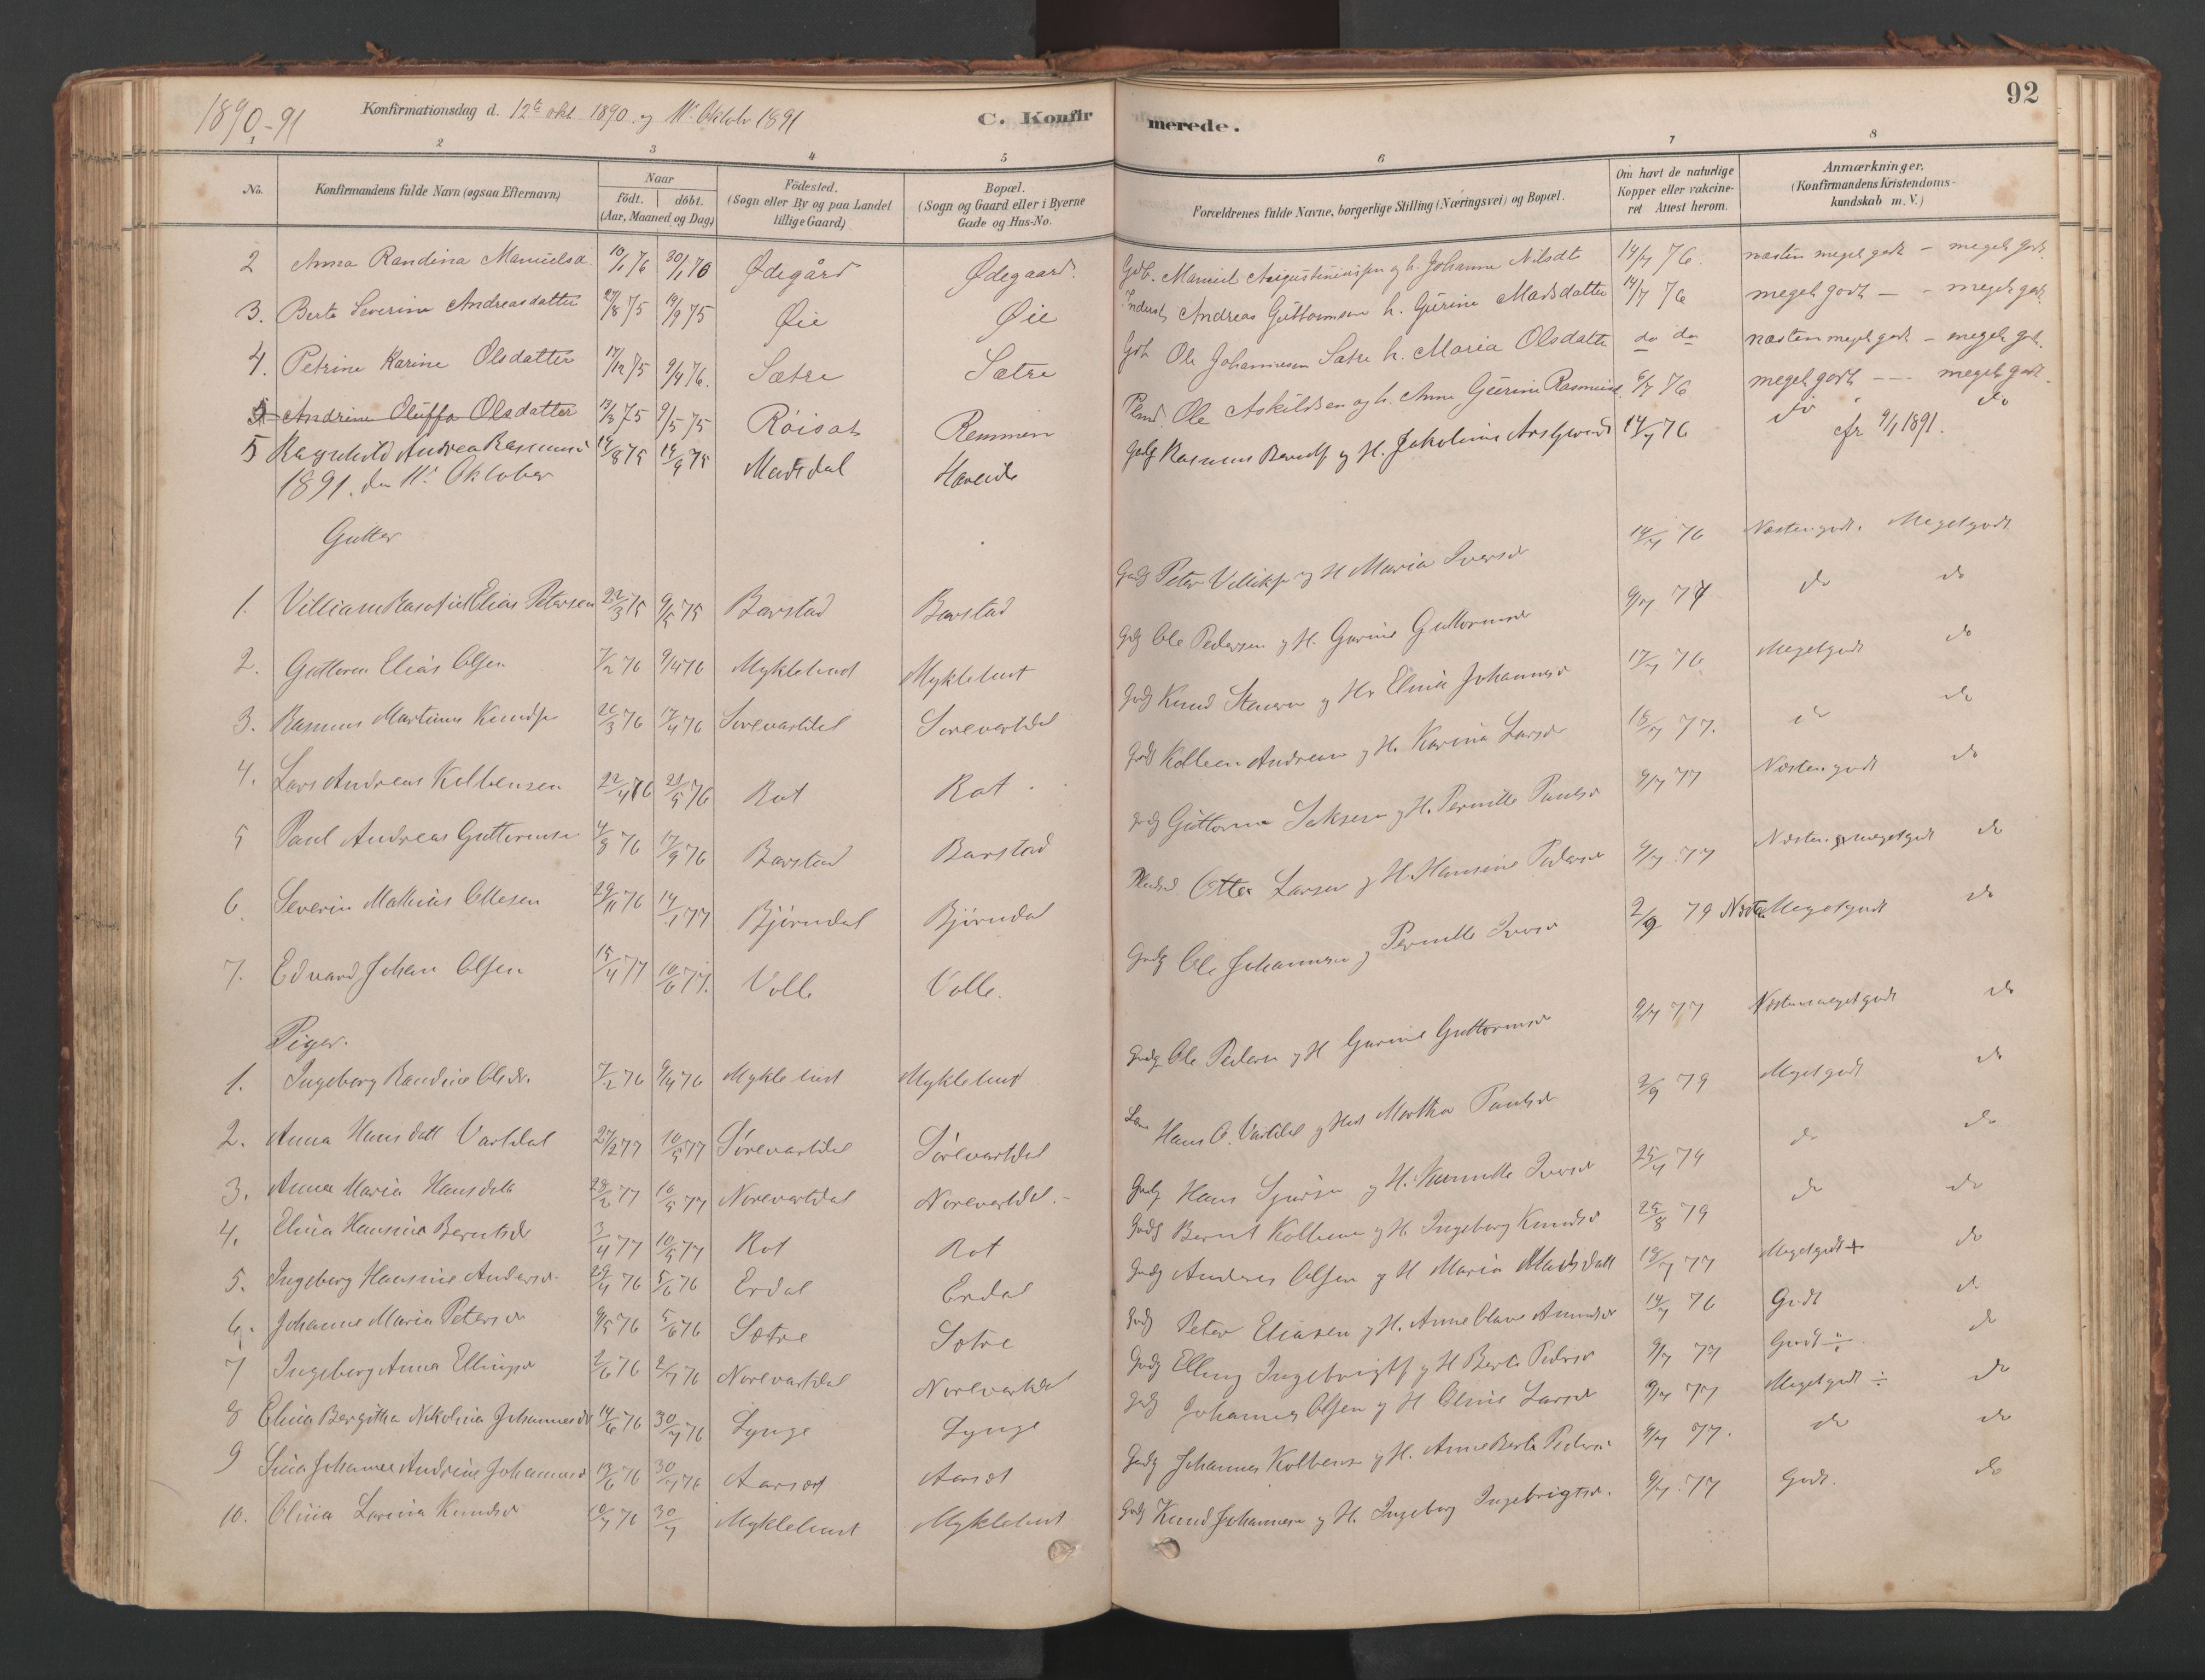 1890-91 Konfirmationsdag d. 12te okt 1890 og 11te Oktober 1891 C. Konfirmerede. 92
1 2 3 4 5 6 7 8
No. Konfirmandens fulde Navn (ogsaa Efternavn) Naar födt. döbt. (Aar, Maaned og Dag) Födested. (Sogn eller By og paa Landet tillige Gaard) Bopæl. (Sogn og Gaard eller i Byerne Gade og Hus-No. Forældrenes fulde Navne, borgerlige Stilling (Næringsvei) og Bopæl. Om havt de naturlige Kopper eller vakcineret Attest herom. Anmærkninger. (Konfirmandens Kristendomskundskab m. V.)
2 Anna Randina Manuelsd. 10/1 76 30/1 76 Ødegård Ødegaard. Gdb. Manuel Augustinussen og h. Johanne Nilsdtr 14/7 76. næsten meget godt – meget godt
3. Berte Severine Andreasdatter 27/8 75 19/9 75 Øie Øie Inderst Andreas Guttormsen h. Gurine Madsdatter 14/7 76 meget godt – – meget godt
4. Petrine Karine Olsdatter 17/12 75 9/4 76. Sætre Sætre Gdb Ole Johannesen Sætre h. Maria Olsdatter do do næsten meget godt – meget godt
5 Andrine Oluffa Olsdatter 13/3 75 9/5 75 Róisat Remmen Plmd. Ole Askildsen og h. Anne Gurine Rasmusd. 6/7 76 meget godt – – – meget godt
5 Ragnhild Andrea Rasmusd 14/8 75 19/9 75 Mardsdal Haveide Gdbg Rasmus Berntsen og H. Jakobine 14/7 76 do do cfr 9/1 1891.
1891. den 11te Oktober
Gutter
1. Villiam Elias Petersen 22/3 75 9/5 75 Barstad Barstad Gdbg Peter Villiksen og H Maria Iversd 14/7 76 Næsten godt. Meget godt
2. Guttorm Elias Olsen 7/2 76 9/4 76 Myklebust Myklebust Gdbg Ole Pedersen og H. Gurine Guttormsd 9/7 77 do do
3. Rasmus Martinus Knudsen 26/3 76 17/4 76 Sørevartdal Sørevartdal Gdbg Knud og H. Elina Johannesd 17/7 76 Meget godt do
4. Lars Andreas Kolbensen 22/4 76 21/5 76 Rot Rot. Gdbg Kolben Andreasen og H. Karina Larsd 18/7 77. do do
5 Paul Andreas Guttormsen 4/8 76 17/9 76 Barstad Barstad Gdbg Guttorm Saksesen og H. Pernille Paulsd 9/7 77 Næsten godt do
6. Severin Mathias Ottesen 29/11 76 14/1 77 Bjørndal Bjørndal Pladsmd Otter Larsen og H. Hansine Pedersd 9/7 77 Næsten meget godt do
7. Edvard Johan Olsen 15/4 77 10/6 77. Volle Volle. Gdbg Ole Johannesen og Pernille Iversd 2/9 79 Næsten Meget godt do
Piger.
1. Ingeborg Randine Olsdr. 7/2 76 9/4 76 Myklebust Myklebust Gdbg Ole Pedersen og H Gurine Guttormsd 9/7 77 Næsten meget godt do
2. Anna Hansdatt Vartdal 27/2 77 10/5 77 Sørevartdal Sørevartdal Hans O. Vartdal og Hst Martha Paulsd 2/9 79 Meget godt do
3. Anna Maria Hansdatt 28/2 77 10/5 77 Norevartdal Norevartdal.– Gdbg Hans Sjursen og H. Iversd 25/4 79 do do
4. Elina Hansina Berntsdr 3/4 77 10/5 77 Rot Rot Gdbg Bernt Kolbensen og H Ingeborg Knudsd 25/8 79 do do
5. Ingeborg Hansine Andersd. 29/4 76 5/6 76 Erdal Erdal Gdbg Anders Olsen og H Maria Madsdatt 18/7 77 Meget godt + do
6. Johanne Maria Petersd 9/5 76 5/6 76 Sætre Sætre Gdbg Peter Eliasen og H. Anne Olave Amundsd 14/7 76 Godt do
7 Ingeborg Anna Ellingsd 2/6 76 2/7 76 Norevartdal Norevartdal Gdbg Elling Ingebrigtsen og H Berte Pedersd 9/7 77 Godt ÷ do
8 Elina Bergitha Nikolina Johannesdr 14/6 76 30/7 76 Lynge Lynge Gdbg Johannes Olsen og H Oline Larsd 9/7 77 Meget godt ÷ do
9 Sina Johanne Andrine Johannesd 13/6 76 30/7 76 Aarset Aarset Gdbg Johannes Kolbensen og H. Anne Berte Pedersd 9/7 77. do do
10. Olina Lovina Knudsd 10/7 76 30/7 Myklebust Myklebust Gdbg Knud Johannesen og H. Ingeborg Ingebrigtsd. 9/7 77 Godt. do